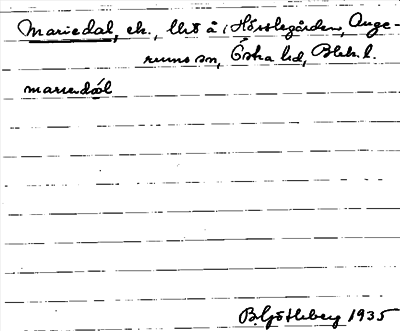 Mariedal, ek., 1/8 å i Hösslegården, Auge-
rums sn, Östra hd, Blek. l.
mariedal
B. Götlberg 1935